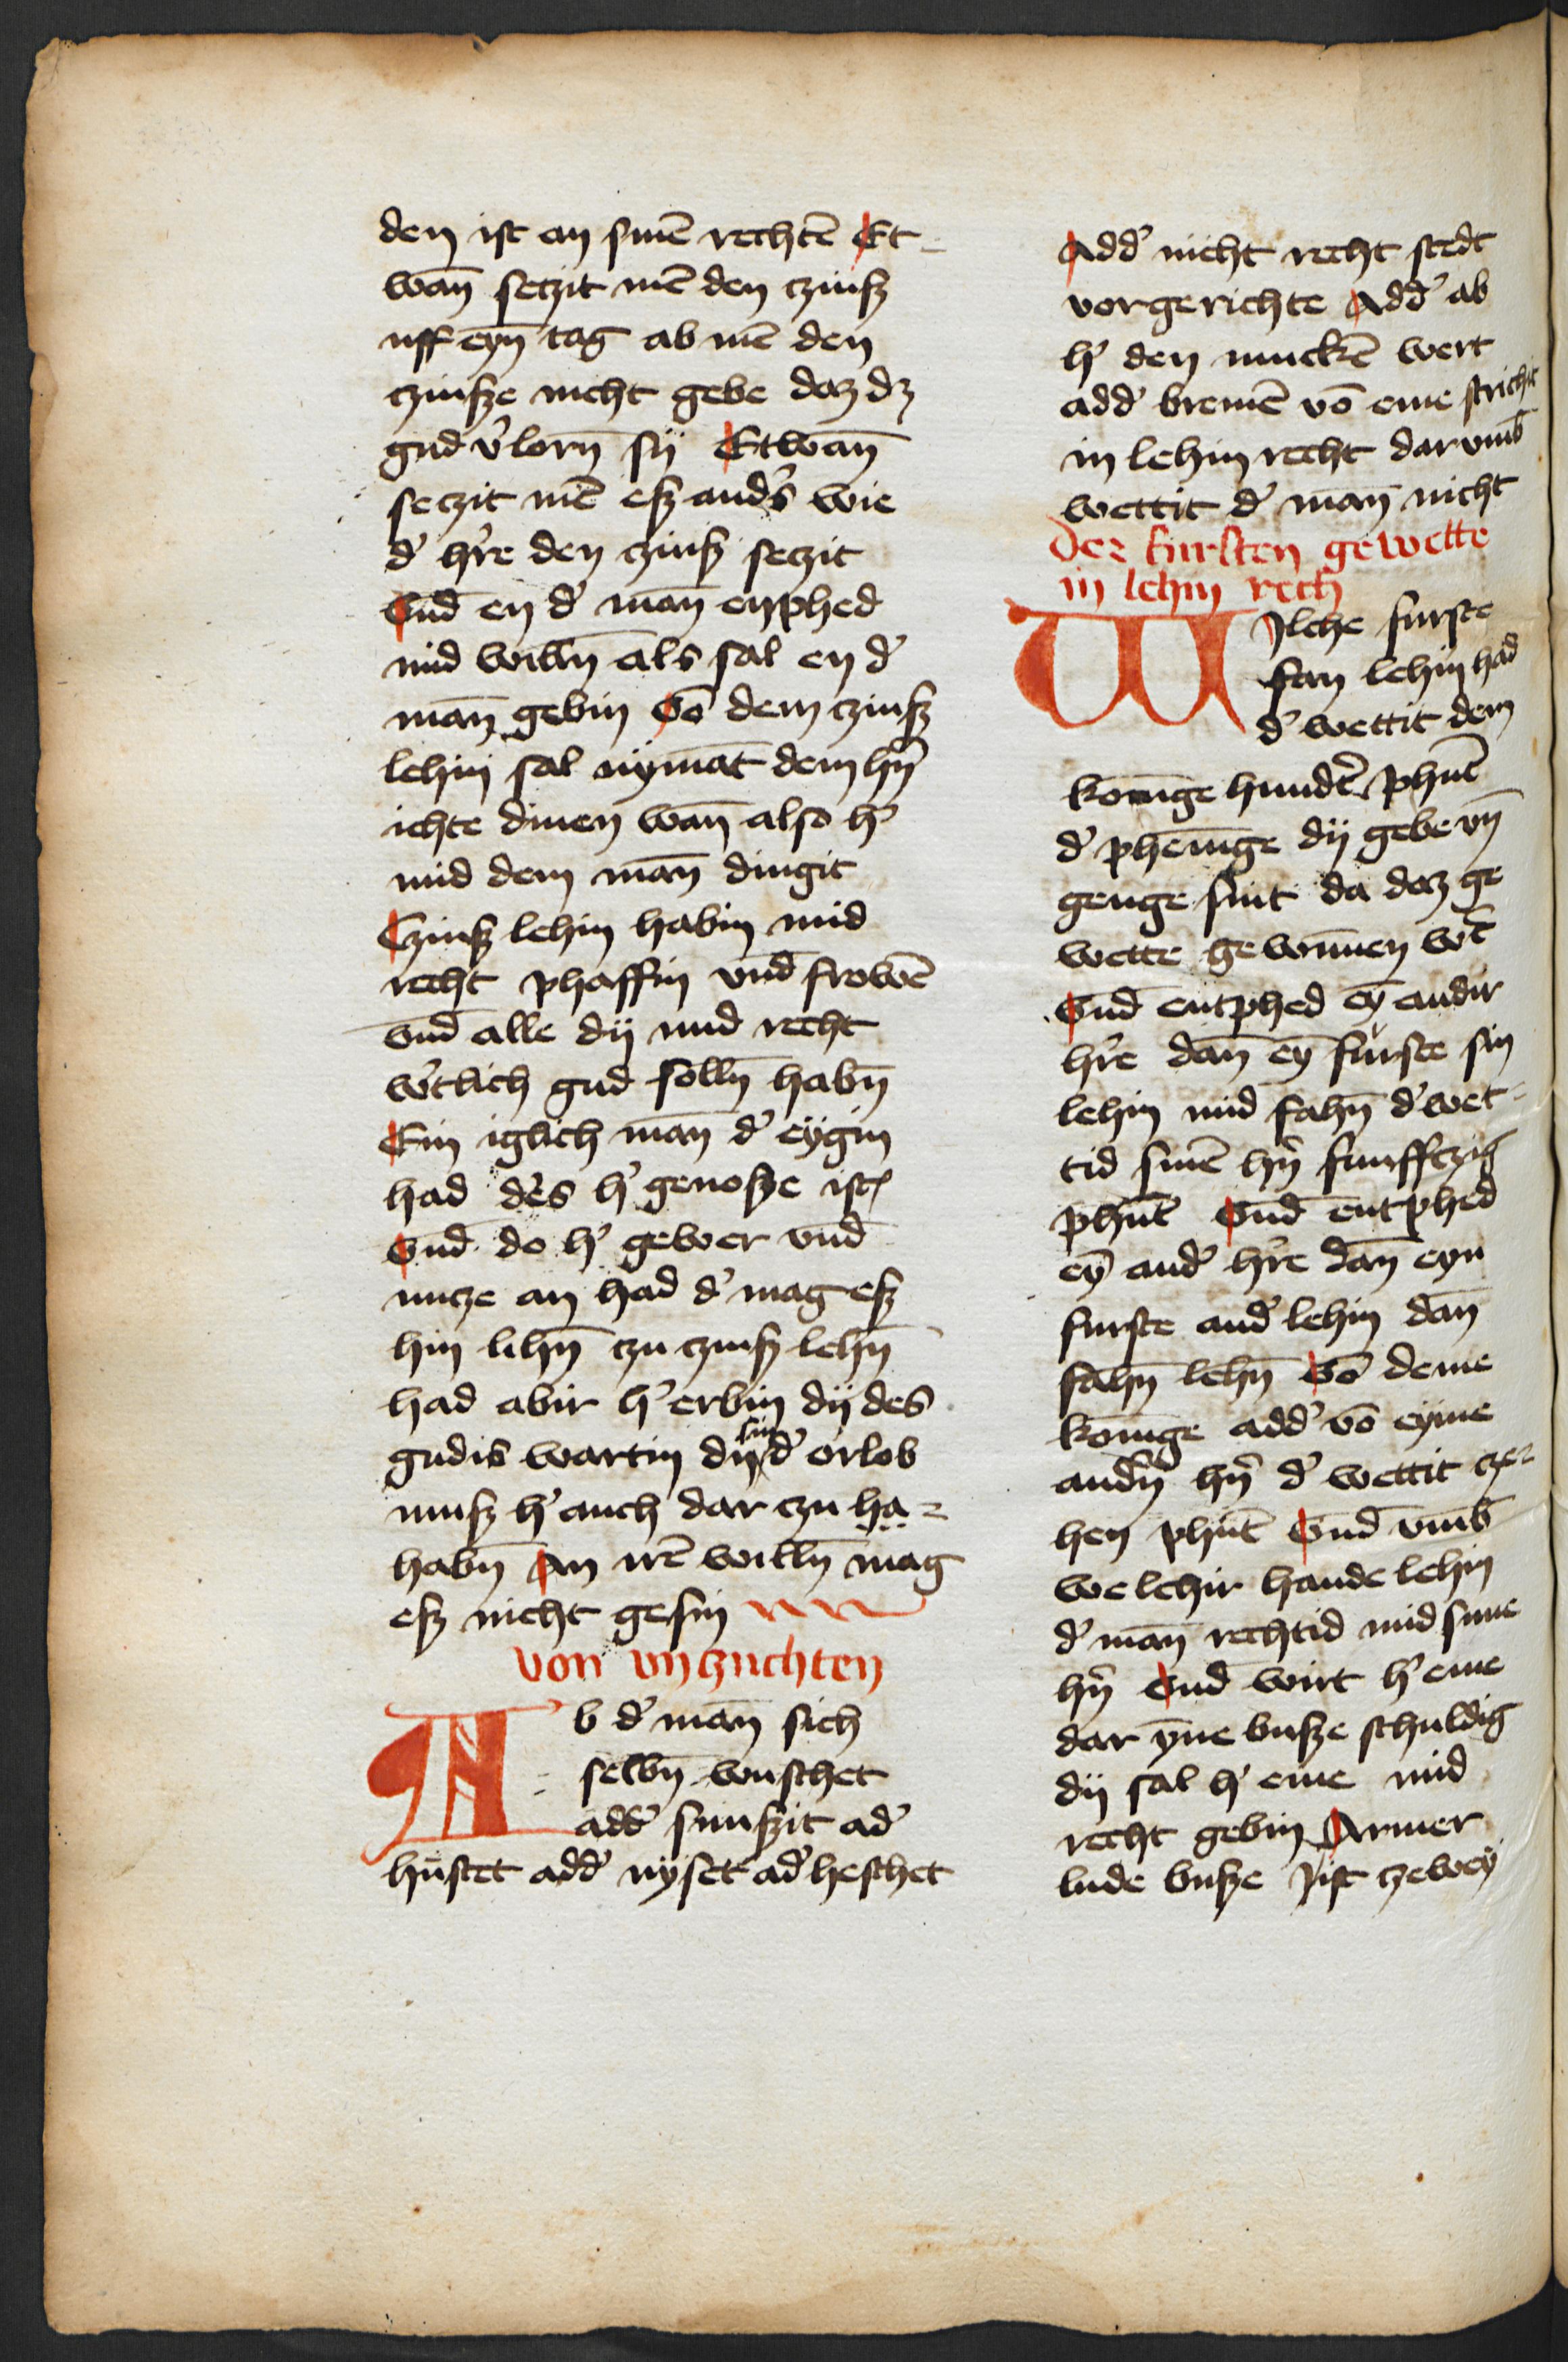 den ist an sinē rechtē Et-
wan̄ seczit mē den czinſz
uff eyn̄ tag ab mē den
czinſze nicht gebe daz dz
gud v'lorn̄ sij Etwan̄
seczit mē eſz and's wie
d' h're den czinſz seczit
Vnd̄ en d' man̄ enphed
mid willn̄ als sal en d'
man̄ gebin Vō dem czinſz
lehin sal nymāt dem hn̄
ichte dinen wan̄ also h'
mid dem man̄ dingit
Czinſz lehin habin mid
recht phaffin vnd̄ frowē
vnd̄ alle dij mid recht
w'tlich gud solln̄ habn̄
Ein iglich man̄ d' eygin
had des h' genoſze ist
Vnd̄ do h' gewer vnd̄
nutze an had d' mag eſz
hin lihn̄ czu czinſz lehn̄
had abir h' erbin dij des
gudis wartin dij sin d' orlob
muſz h' auch dar czu ha-
habn̄ An irē willn̄ mag
eſz nicht gesin
von vnczuchten
Ab d' man̄ sich
selbn̄ wuschet
add' snuſzit ad'
hustet add' nyset ad' heschet
Add' nicht recht stedt
vorgerichte Add' ab
h' den muckē wert
add' bremē vō eme strichit
in lehin recht darvmb̄
wettit d' man̄ nicht
Der fursten gewette
in lehin rech
WJlche furste
fan lehin had
d' wettit dem
konīge hundt' phūt
d' phenīge dij gebe vn̄
genge sint da daz ge
wette gewunnen w't
Vnd̄ entphed eȳ andir
h're dan̄ eȳ furste sin
lehin mid fahn̄ d' wet-
tid sinē hn̄ funffczig
phūt Vnd̄ entphed
eȳ and' h're dan̄ eyn
furste and' lehin dan̄
fahn̄ lehn̄ Vō deme
konīge add' vō eyme
andn̄ hn̄ d' wettit cze-
hen phūt Vnd̄ vmb̄
welchir hande lehin
d' man̄ rechtid mid sime
hn̄ Vnd̄ wirt h' eme
dar ȳne buſze schuldig
dij sal h' eme mid
recht gebin Armer
lude buſze Jist czewey